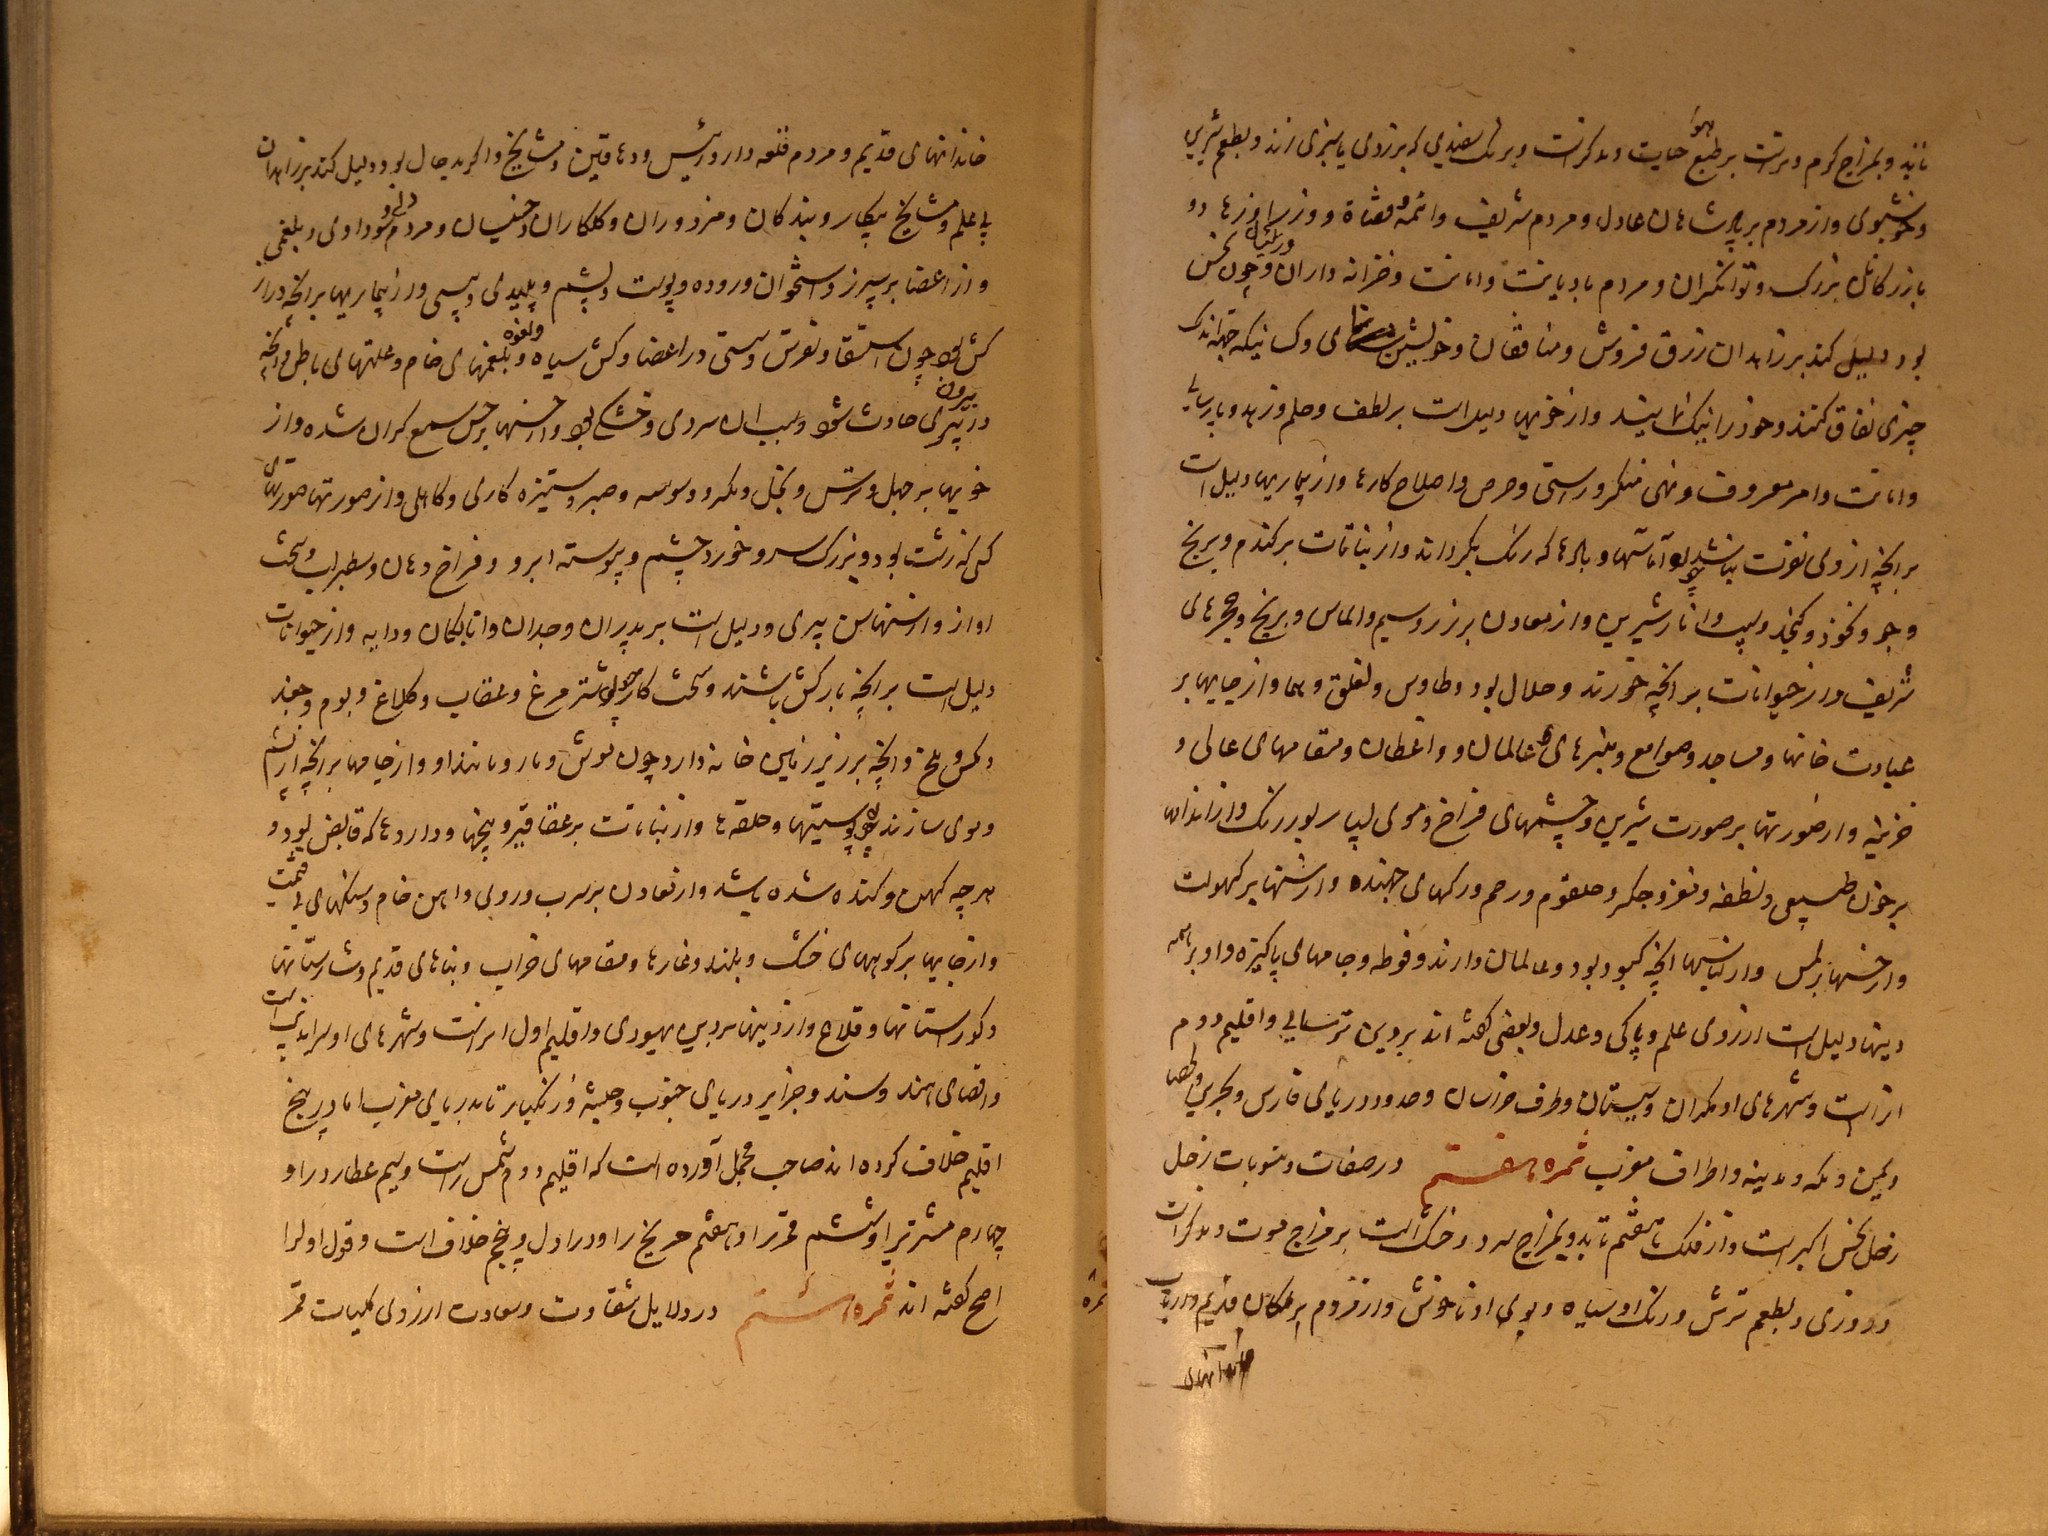 تابد و بمزاج گرم و ترست بر طبع هوا حیات و مذکرست و برنک سفیدی که بزردی یا سبزی زند و بطعم شیرین
و خوشبوی و از مردم بر پادشاهان عادل و مردم شریف و ائمه و قضاة و وزرا و
بازرکانان بزرک و توانکران و مردم با دیانت و امانت و خزانه داران و چون نحس
بود دلیل کند بر زاهدان زرق فروش و منافقان و خویشتن کسانیکه جهة اندک
چیزی نفاق کنند و خود را نیک نمایند و از خویها دلیلست بر لطف و حلم و زهد و پارسایی
و امانت و امر معروف و نهی منکر و راستی و حرص و اصلاح کارها و از بیماریها دلیل است
بر انچه از وی نفرت نباشد چون آماسها و بادها که رنک بکرداند و از نباتات بر کندم و برنج
و جو و نخود و کنجد و پسته و انار شیرین و از معادن بر زر و سیم و الماس و برنج و حجرهای
شریف و از حیوانات بر انچه خورند و حلال بود و طاوس و لقلق و هما و از جایها بر
عبادت خانها و مساجد و صوامع و منبرهای عالمان و واعظان و مقامهای عالی و
خزینه و از صورتها بر صورت شیرین و چشمهای فراخ و موی بسیار بور رنک و از اندام
بر خون طبیعی و نطفه و مغز و جکر و حلقوم و رحم و رکهای جهنده و از سنها بر کهولت
و از حسها بر لمس و از لباسها انچه کبود بود و عالمان دارند و فوطه و جامهای پاکیزه و او بر همه
دینها دلیل است از روی علم و پاکی و عدل و بعضی کفته اند بر دین ترسایی و اقلیم دوم
از انست و شهرهای او مکران و سیستان و طرف خراسان و حدود دریای فارس و بحرین و
و یمن و مکه و مدینه و اطراف مغرب ثمره هفتم در صفات و منسوبات زحل
زحل نحس اکبرست و از فلک هفتم تابد و بمزاج سرد و خشک است بر مزاج موت و مذکرست
و روزی و بطعم ترش و رنک او سیاه و بوی او ناخوش و از مردم بر ملکان قدیم و ارباب
خاندانهای
خاندانهای قدیم و مردم قلعه دار و رئیس و دهاقین و مشایخ و اگر بد حال بود دلیل کند بر زاهدان
بی علم و مشایخ بیکار و بندکان و مزدوران و کلکاران و مردم دنی و سوداوی و بلغمی
و از اعضا بر سپرز و استخوان و روده و پوست و پشم و پلیدی و پیسی و از بیماریها بر انچه دراز
کش بود چون استسقا و نقرس و سستی در اعضا و کش سیاه و لقوه و بلغمهای خام و علتهای باطن و انچه
در پیری حادث شود و سبب ان سردی و خشکی بود و از حسها بر حس سمع کران شده و از
خویها بر جهل و ترس و بخل و مکر و وسوسه و صبر و ستیزه کاری و کاهلی و از صورتها صورتهای
کسی که زشت بود و بزرک سر و خورد چشم و پیوسته ابرو و فراخ دهان و سطبر لب و سخت
اواز و از سنها سن پیری و دلیل است بر پدران و جدان و اتابکان و دایه و از حیوانات
دلیل است بر انچه بارکش باشند و سخت کار چون شتر مرغ و عقاب و کلاغ و بوم و جغد
و مکس و ملخ و انچه بر زیر زمین خانه دارد چون موش و مار و مانند او و از جامها بر انچه از پشم
و موی سازند چون پوستینها و حلقه ها و از نباتات بر عقاقیر و بیخها و داروها که قابض بود و
هر چه کهن و کنده شده باشد و از معادن بر سرب و روی و اهن خام و سنکهای بی قیمت
و از جایها بر کوههای خشک و بلند و غارها و مقامهای خراب و بناهای قدیم و شارستانها
و کورستانها و قلاع و از دینها بر دین یهودی و اقلیم اول او راست و شهرهای او سراندیب است
و اقصای هند و سند و جزایر دریای جنوب و حبشه و زنکبار تا بدریای مغرب اما در پنج
اقلیم خلاف کرده اند صاحب مجمل آورده است که اقلیم دوم شمس راست و سیم عطارد را و
چهارم مشتری را و ششم قمر را و هفتم مریخ را و در اول و پنج خلاف است و قول اول را
اصح کفته اند ثمره هشتم در دلایل شقاوت و سعادت از روی کلیات قمر